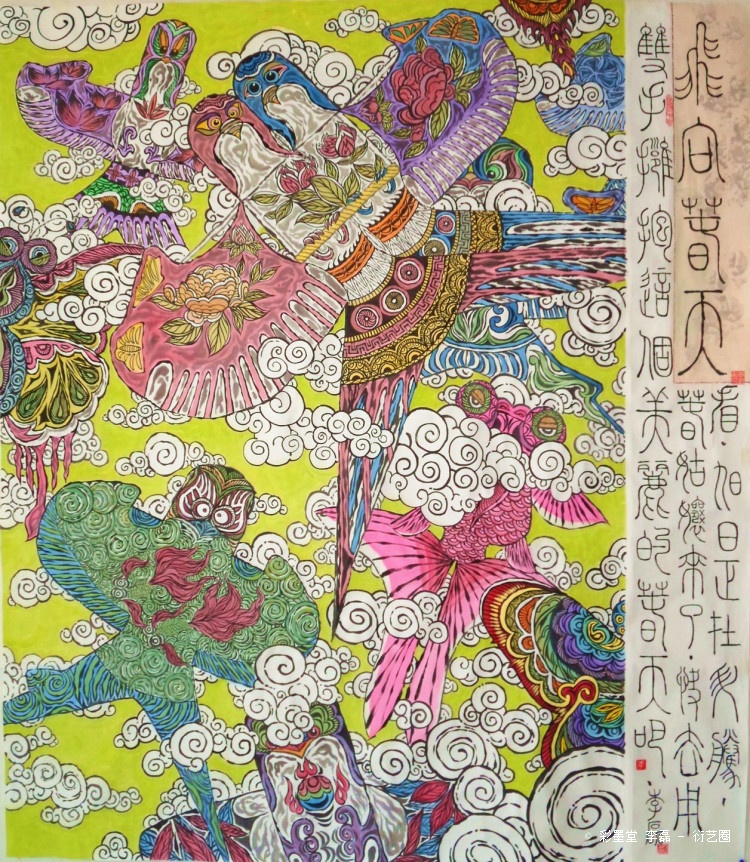 飛向春天
看，旭日正在升騰，
春姑孃來了，快去用
雙手擁抱這個美麗的春天吧
© 彩墨堂 李磊 - 衍艺圈